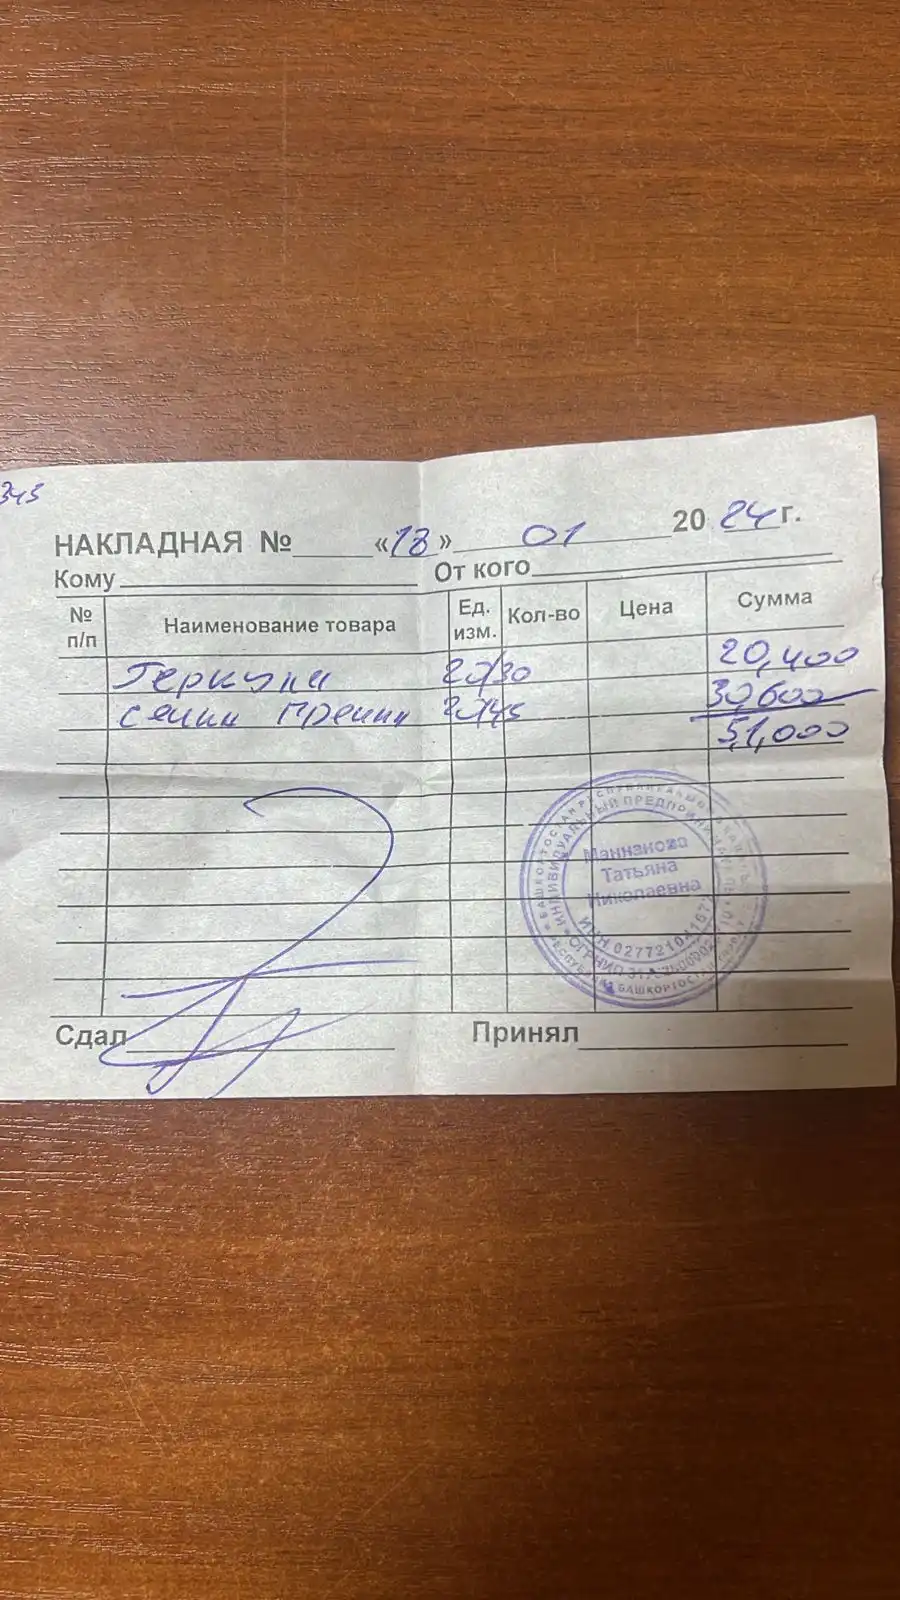 345
НАКЛАДНАЯ № «18» 01 2024 г.
Кому От кого
№ п/п Наименование товара Ед. изм. Кол-во Цена Сумма
Геркулес 20,400
30,600
51,000
БАШКОРТОСТАН РЕСПУБЛИКАҺЫ
ИНДИВИДУАЛЬНЫЙ ПРЕДПРИНИМАТЕЛЬ
Маннанова
Татьяна
Николаевна
ИНН
ОГРНИП
РЕСПУБЛИКА БАШКОРТОСТАН
Сдал Принял